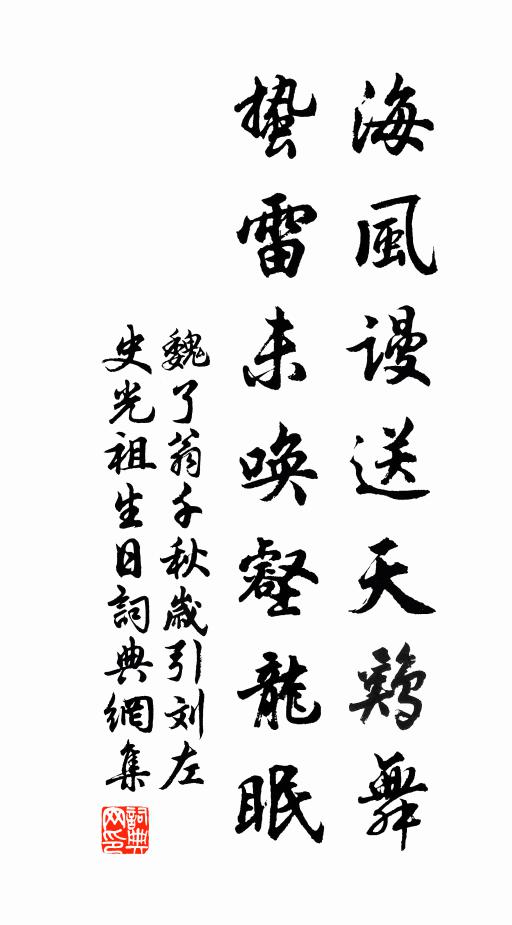 海風謾送天鷄舞
蟄雷未喚壑龍眠
魏了翁千秋歲引刘左
史光祖生日詞典網集
詞典
网印